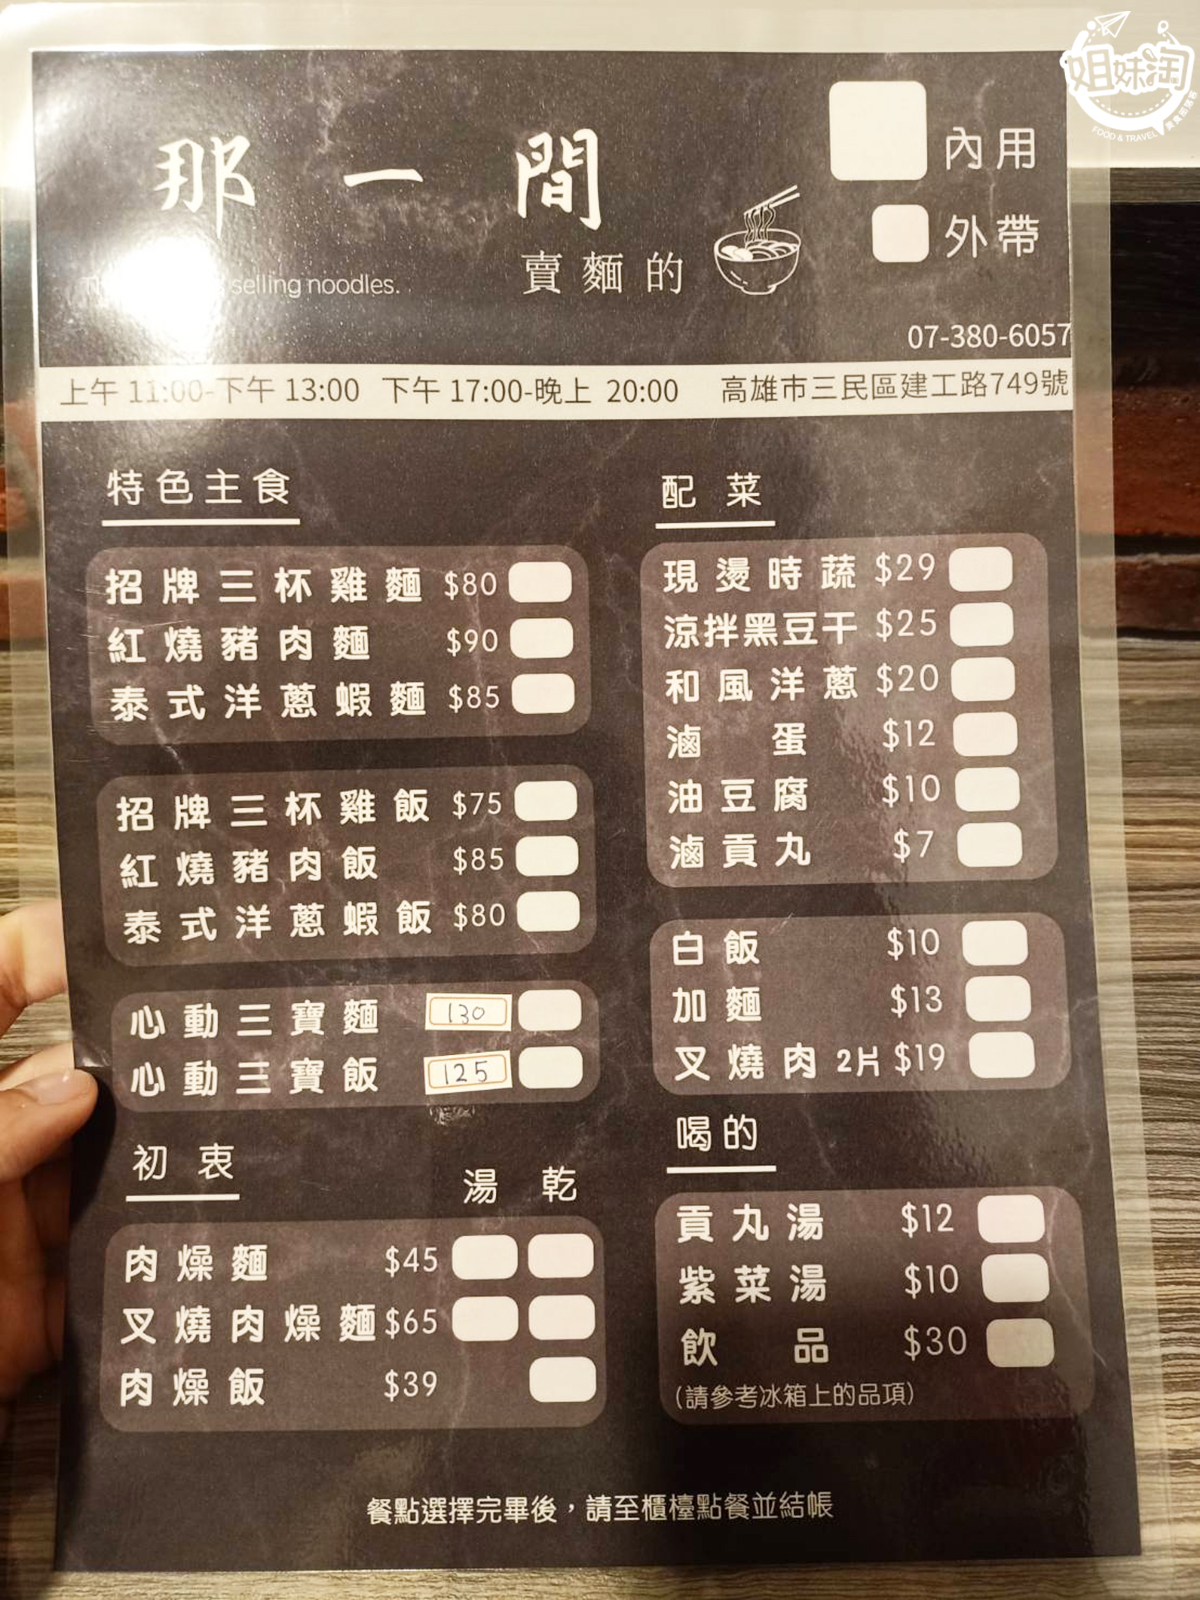 姐妹淘
FOOD & TRAVEL
那一間
賣麵的
selling noodles.
內用
外帶
07-380-6057
上午 11:00-下午 13:00 下午 17:00-晚上 20:00 高雄市三民區建工路749號
特色主食
招牌三杯雞麵 $80
紅燒豬肉麵 $90
泰式洋蔥蝦麵 $85
招牌三杯雞飯 $75
紅燒豬肉飯 $85
泰式洋蔥蝦飯 $80
心動三寶麵 130
心動三寶飯 125
初衷
湯 乾
肉燥麵 $45
叉燒肉燥麵 $65
肉燥飯 $39
配菜
現燙時蔬 $29
涼拌黑豆干 $25
和風洋蔥 $20
滷蛋 $12
油豆腐 $10
滷貢丸 $7
白飯 $10
加麵 $13
叉燒肉 2片 $19
喝的
貢丸湯 $12
紫菜湯 $10
飲品 $30
(請參考冰箱上的品項)
餐點選擇完畢後，請至櫃檯點餐並結帳